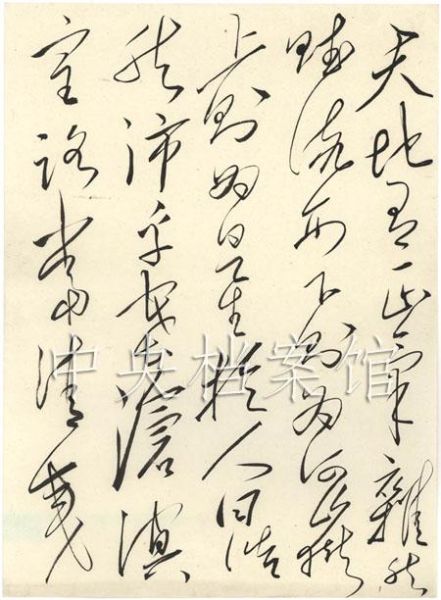 天地有正氣雜然
賦流形下則為河嶽
上則為日星於人曰浩
然沛乎塞滄溟
皇路當清夷
中央档案馆